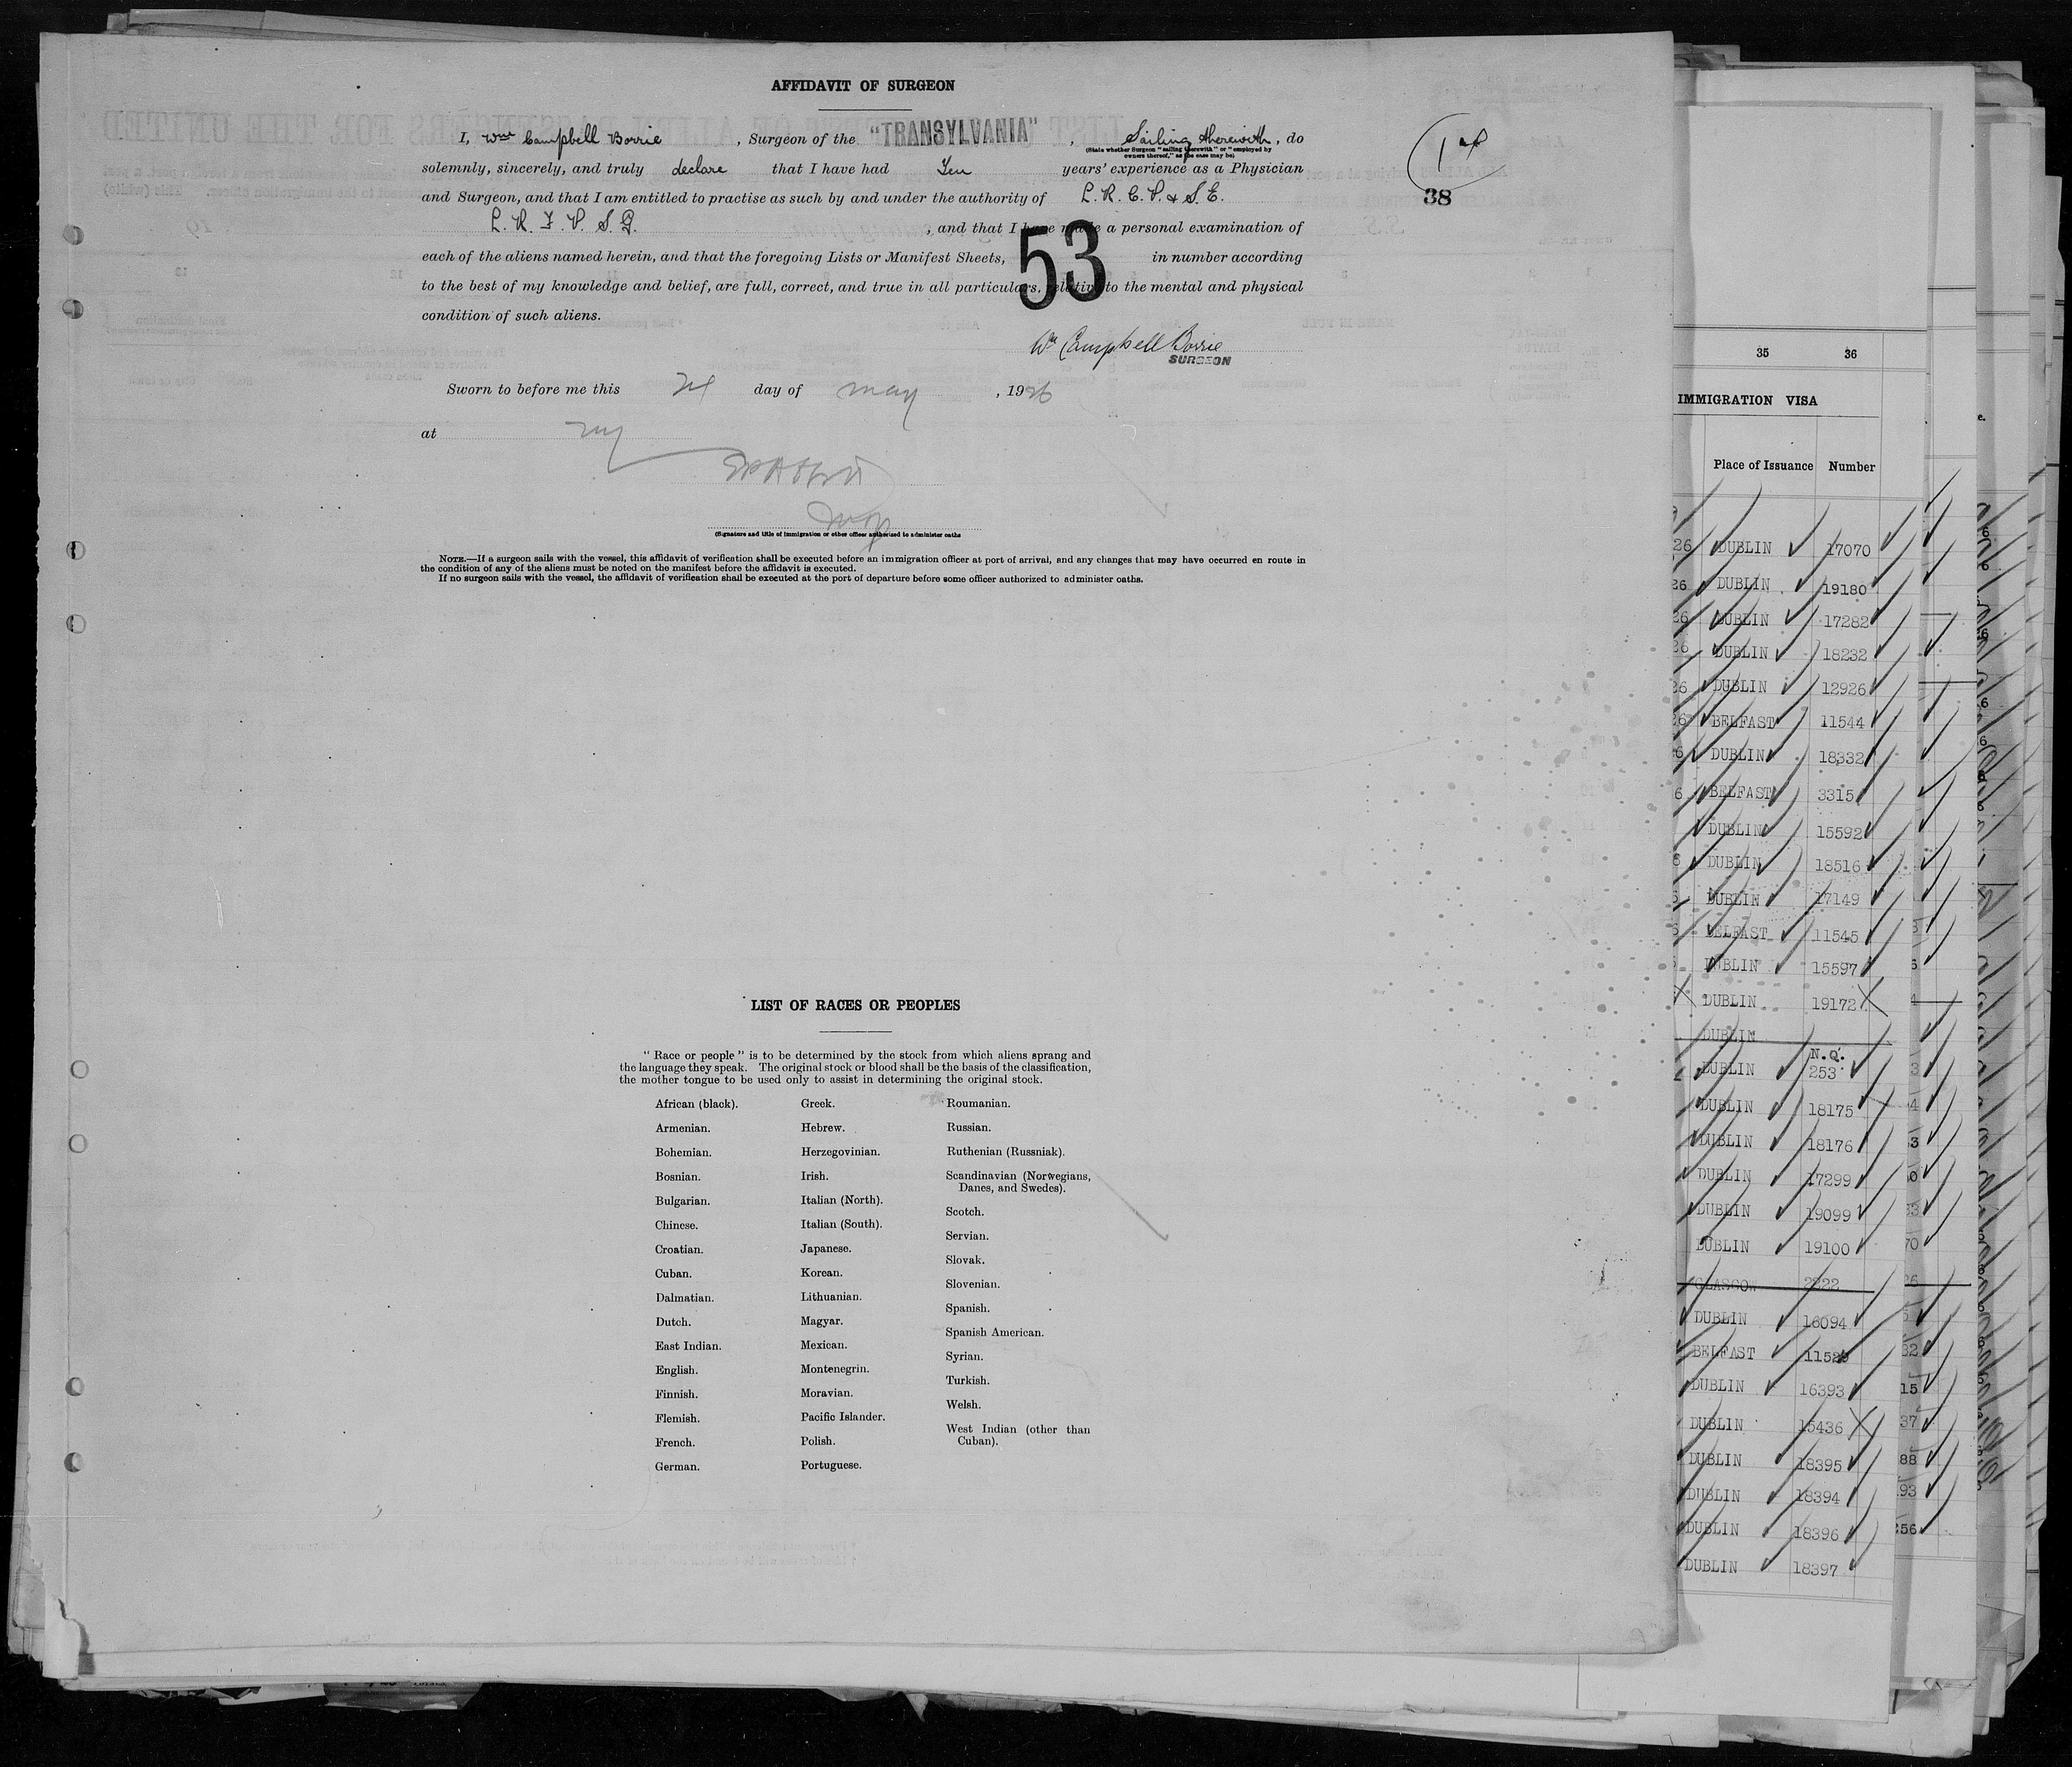 AFFIDAVIT OF SURGEON
I, Wm Campbell Borrie, Surgeon of the "TRANSYLVANIA", Sailing therewith, do
(State whether Surgeon "sailing therewith" or "employed by
owners thereof," as the case may be)
solemnly, sincerely, and truly declare that I have had Ten years' experience as a Physician
and Surgeon, and that I am entitled to practise as such by and under the authority of L. R. C. P. & S. E.
L. R. F. P. S. G. , and that I have made a personal examination of
each of the aliens named herein, and that the foregoing Lists or Manifest Sheets, 53 in number according
to the best of my knowledge and belief, are full, correct, and true in all particulars, relative to the mental and physical
condition of such aliens.
38
Wm Campbell Borrie
SURGEON
Sworn to before me this day of May, 1926
at NY
(Signature and title of immigration or other officer authorized to administer oaths
NOTE.—If a surgeon sails with the vessel, this affidavit of verification shall be executed before an immigration officer at port of arrival, and any changes that may have occurred en route in
the condition of any of the aliens must be noted on the manifest before the affidavit is executed.
If no surgeon sails with the vessel, the affidavit of verification shall be executed at the port of departure before some officer authorized to administer oaths.
LIST OF RACES OR PEOPLES
"Race or people" is to be determined by the stock from which aliens sprang and
the language they speak. The original stock or blood shall be the basis of the classification,
the mother tongue to be used only to assist in determining the original stock.
African (black).
Armenian.
Bohemian.
Bosnian.
Bulgarian.
Chinese.
Croatian.
Cuban.
Dalmatian.
Dutch.
East Indian.
English.
Finnish.
Flemish.
French.
German.
Greek.
Hebrew.
Herzegovinian.
Irish.
Italian (North).
Italian (South).
Japanese.
Korean.
Lithuanian.
Magyar.
Mexican.
Montenegrin.
Moravian.
Pacific Islander.
Polish.
Portuguese.
Roumanian.
Russian.
Ruthenian (Russniak).
Scandinavian (Norwegians,
Danes, and Swedes).
Scotch.
Servian.
Slovak.
Slovenian.
Spanish.
Spanish American.
Syrian.
Turkish.
Welsh.
West Indian (other than
Cuban).
35 36
IMMIGRATION VISA
Place of Issuance Number
DUBLIN 17070
DUBLIN 19180
DUBLIN 17282
DUBLIN 18232
DUBLIN 12926
BELFAST 11544
DUBLIN 18332
BELFAST 3315
DUBLIN 15592
DUBLIN 18516
DUBLIN 17149
BELFAST 11545
DUBLIN 15597
DUBLIN 19172
DUBLIN
N.Q.
DUBLIN 253
DUBLIN 18175
DUBLIN 18176
DUBLIN 17299
DUBLIN 19099
DUBLIN 19100
GLASGOW 2322
DUBLIN 16094
BELFAST 11529
DUBLIN 16393
DUBLIN 15436
DUBLIN 18395
DUBLIN 18394
DUBLIN 18396
DUBLIN 18397